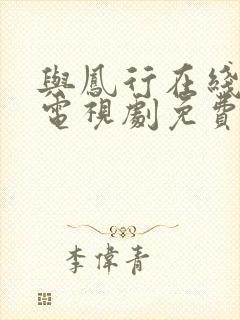 與鳳行在綫
電視劇免費
李偉青